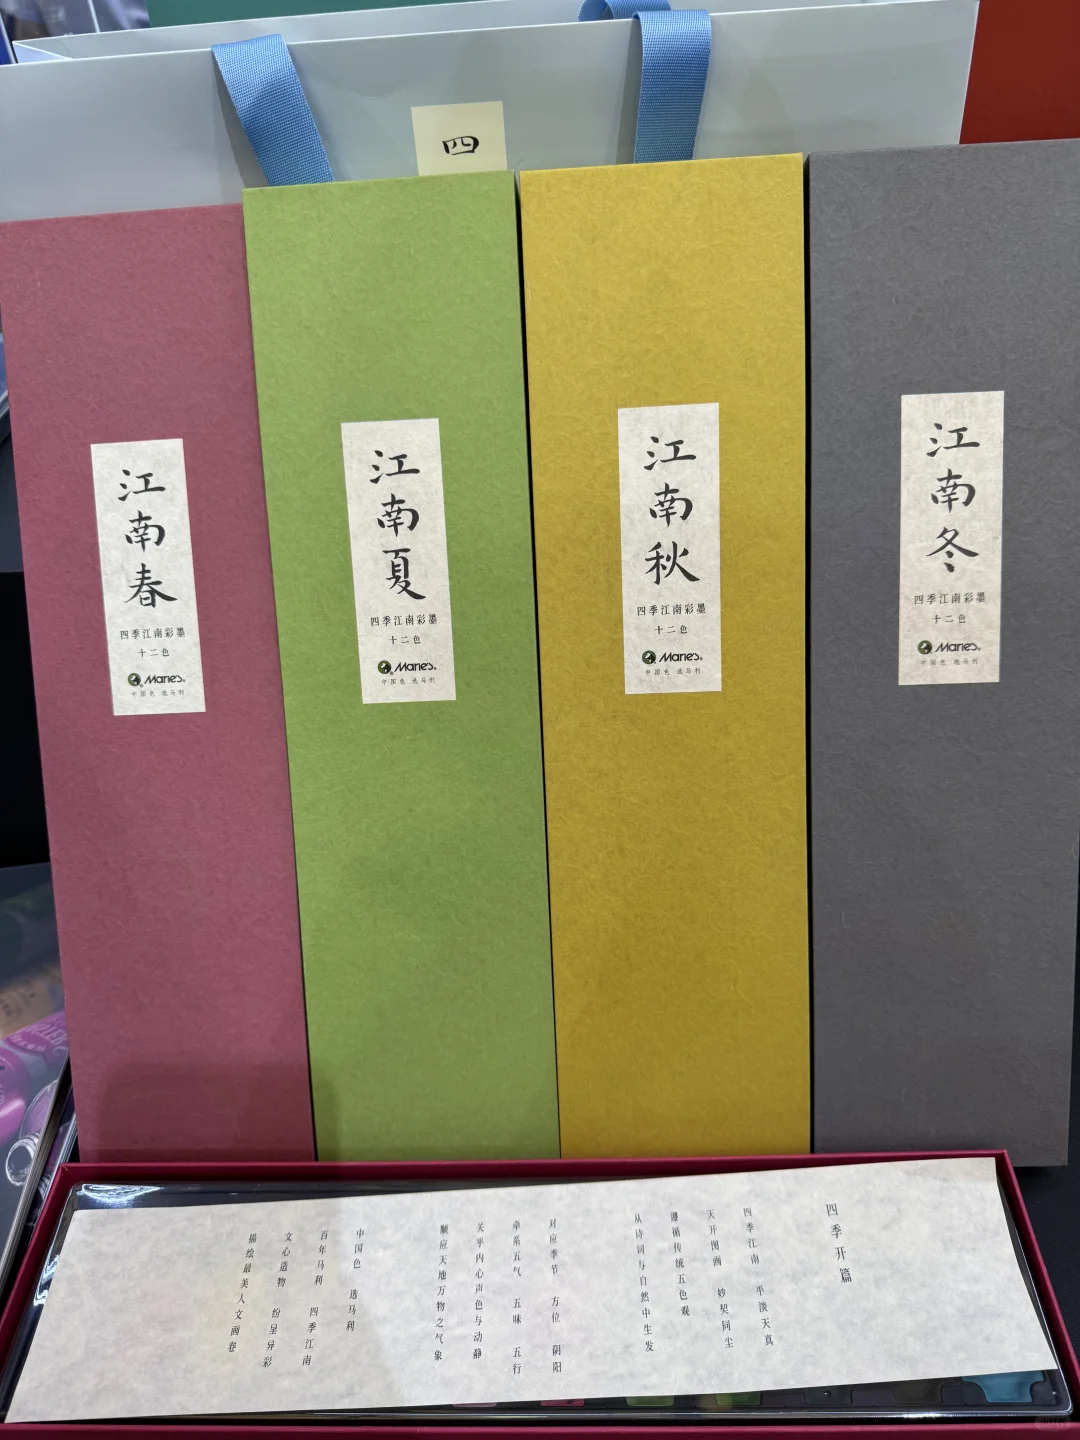 四
江南春
四季江南彩墨
十二色
Marie's
中国色 选马利
江南夏
四季江南彩墨
十二色
Marie's
中国色 选马利
江南秋
四季江南彩墨
十二色
Marie's
中国色 选马利
江南冬
四季江南彩墨
十二色
Marie's
中国色 选马利
四季开篇
四季江南 平淡天真
天开图画 妙契同尘
遵循传统五色观
从诗词与自然中生发
对应季节 方位 阴阳
牵系五气 五味 五行
关乎内心声色与动静
顺应天地万物之气象
中国色 选马利
百年马利 四季江南
文心造物 纷呈异彩
描绘最美人文画卷